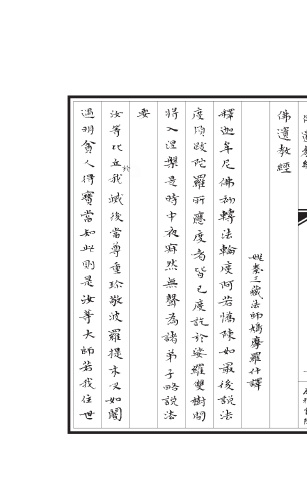 佛遺教經
姚秦三藏法師鳩摩羅什譯
釋迦牟尼佛初轉法輪度阿若憍陳如最後說法
度須跋陀羅所應度者皆已度訖於娑羅雙樹間
將入涅槃是時中夜寂然無聲為諸弟子略說法
要
汝等比丘於我滅後當尊重珍敬波羅提木叉如闇
遇明貧人得寶當知此則是汝等大師若我住世